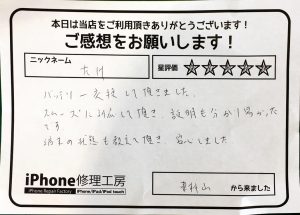 本日は当店をご利用頂きありがとうございます!
ご感想をお願いします!
ニックネーム
星評価
バッテリー交換して頂きました。
スムーズに対応して頂き、説明も分かり易かった
です
端末の状態も教えて頂き、安心しました
iPhone修理工房
iPhone Repair Factory
iPhone/iPad/iPod touch
東村山
から来ました